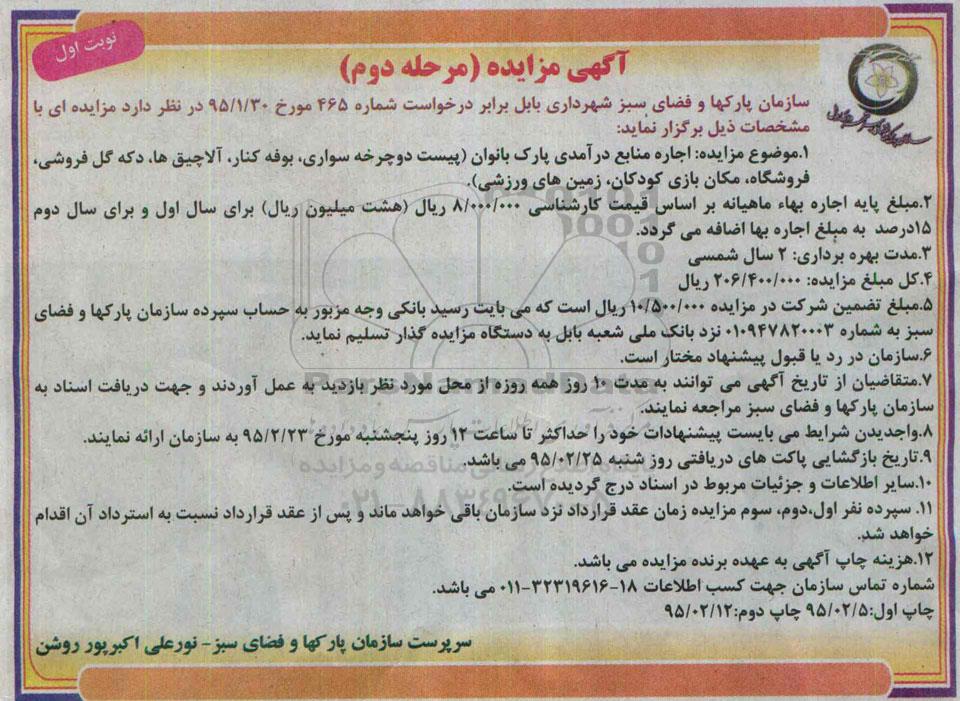 نوبت اول
آگهی مزایده (مرحله دوم)
سازمان پارکها و فضای سبز شهرداری بابل برابر درخواست شماره ۴۶۵ مورخ ۹۵/۱/۳۰ در نظر دارد مزایده ای با
مشخصات ذیل برگزار نماید:
۱.موضوع مزایده: اجاره منابع درآمدی پارک بانوان (پیست دوچرخه سواری، بوفه کنار، آلاچیق ها، دکه گل فروشی،
فروشگاه، مکان بازی کودکان، زمین های ورزشی).
۲.مبلغ پایه اجاره بهاء ماهیانه بر اساس قیمت کارشناسی ۸/۰۰۰/۰۰۰ ریال (هشت میلیون ریال) برای سال اول و برای سال دوم
۱۵درصد به مبلغ اجاره بها اضافه می گردد.
۳.مدت بهره برداری: ۲ سال شمسی
۴.کل مبلغ مزایده: ۲۰۶/۴۰۰/۰۰۰ ریال
۵.مبلغ تضمین شرکت در مزایده ۱۰/۵۰۰/۰۰۰ ریال است که می بایت رسید بانکی وجه مزبور به حساب سپرده سازمان پارکها و فضای
سبز به شماره ۰۱۰۹۴۷۸۲۰۰۰۳ نزد بانک ملی شعبه بابل به دستگاه مزایده گذار تسلیم نماید.
۶.سازمان در رد یا قبول پیشنهاد مختار است.
۷.متقاضیان از تاریخ آگهی می توانند به مدت ۱۰ روز همه روزه از محل مورد نظر بازدید به عمل آوردند و جهت دریافت اسناد به
سازمان پارکها و فضای سبز مراجعه نمایند.
۸.واجدیدن شرایط می بایست پیشنهادات خود را حداکثر تا ساعت ۱۲ روز پنجشنبه مورخ ۹۵/۲/۲۳ به سازمان ارائه نمایند.
۹.تاریخ بازگشایی پاکت های دریافتی روز شنبه ۹۵/۰۲/۲۵ می باشد.
۱۰.سایر اطلاعات و جزئیات مربوط در اسناد درج گردیده است.
۱۱. سپرده نفر اول،دوم، سوم مزایده زمان عقد قرارداد نزد سازمان باقی خواهد ماند و پس از عقد قرارداد نسبت به استرداد آن اقدام
خواهد شد.
۱۲.هزینه چاپ آگهی به عهده برنده مزایده می باشد.
شماره تماس سازمان جهت کسب اطلاعات ۱۸-۳۲۳۱۹۶۱۶-۰۱۱ می باشد.
چاپ اول:۹۵/۰۲/۵ چاپ دوم:۹۵/۰۲/۱۲
سرپرست سازمان پارکها و فضای سبز- نورعلی اکبرپور روشن